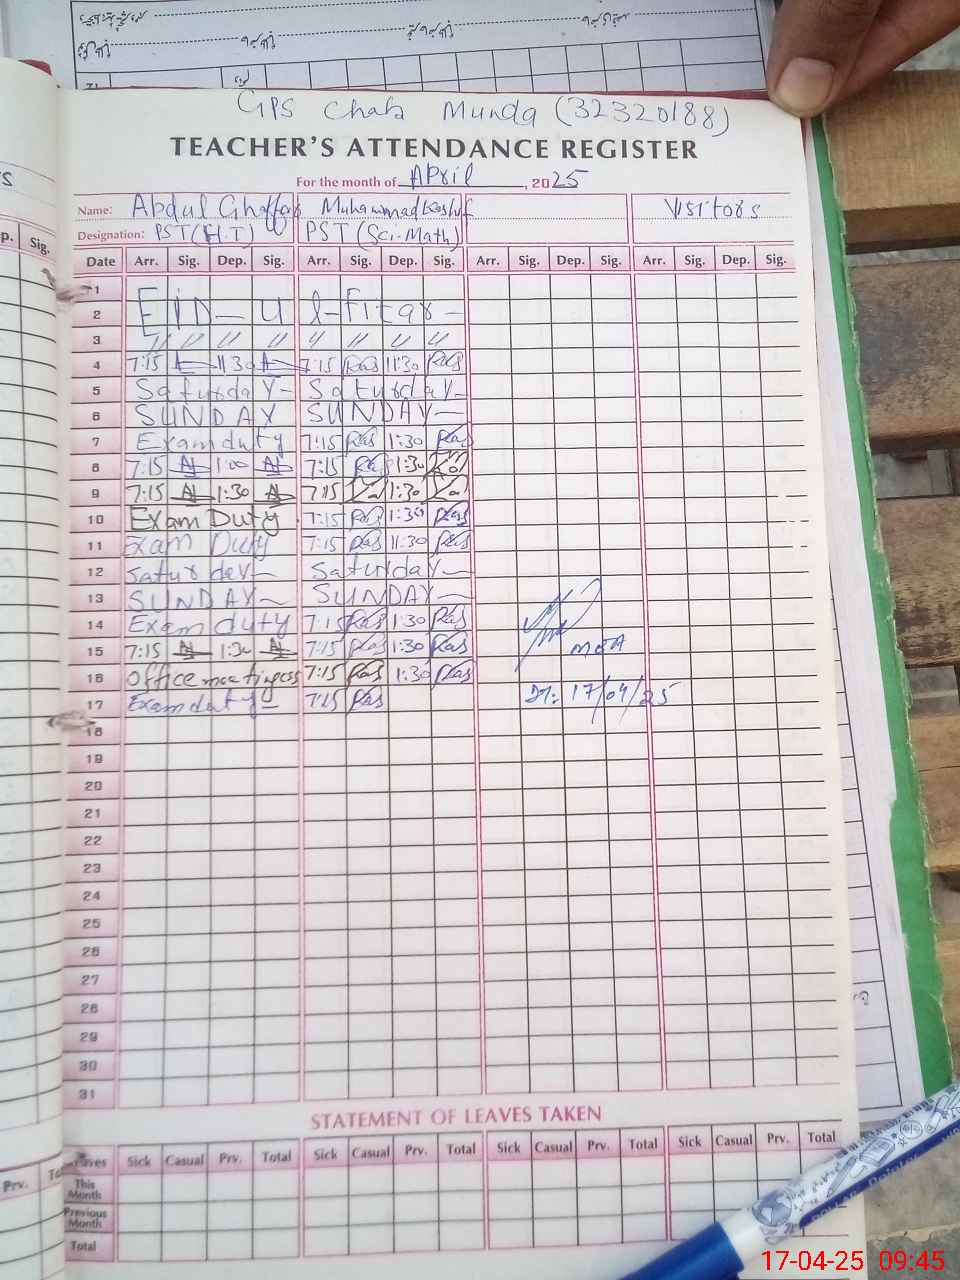 GPS Chak Munda (32320188)
TEACHER'S ATTENDANCE REGISTER
For the month of April, 2025
Name: Abdul Ghaffar Muhammad Kashif Visitors
Designation: PST (H.T) PST (Sci-Math)
p. Sig.
Date Arr. Sig. Dep. Sig. Arr. Sig. Dep. Sig. Arr. Sig. Dep. Sig. Arr. Sig. Dep. Sig.
1
2 EID - U l - Fitar -
3 " " " " " " " "
4 7:15 11:30 7:15 11:30
5 Saturday - Saturday -
6 SUNDAY SUNDAY -
7 Exam duty 7:15 1:30
8 7:15 1:00 7:15 1:30
9 7:15 1:30 7:15 1:30
10 Exam Duty 7:15 1:30
11 Exam Duty 7:15 11:30
12 Saturday - Saturday -
13 SUNDAY - SUNDAY -
14 Exam duty 7:15 1:30
15 7:15 1:30 7:15 1:30 MEA
16 Office meeting 7:15 1:30
17 Exam duty - 7:15 Dt: 17/04/25
18
19
20
21
22
23
24
25
26
27
28
29
30
31
STATEMENT OF LEAVES TAKEN
Leaves Sick Casual Prv. Total Sick Casual Prv. Total Sick Casual Prv. Total Sick Casual Prv. Total
Prv.
This Month
Previous Month
Total
DOLLAR Pointer
17-04-25 09:45